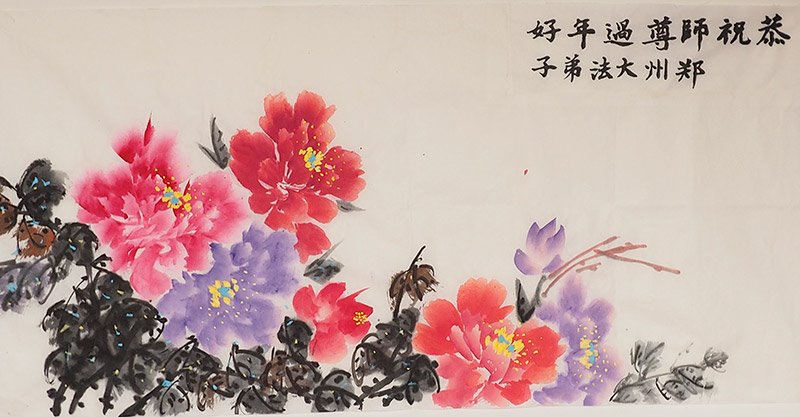 恭祝師尊過年好
郑州大法弟子